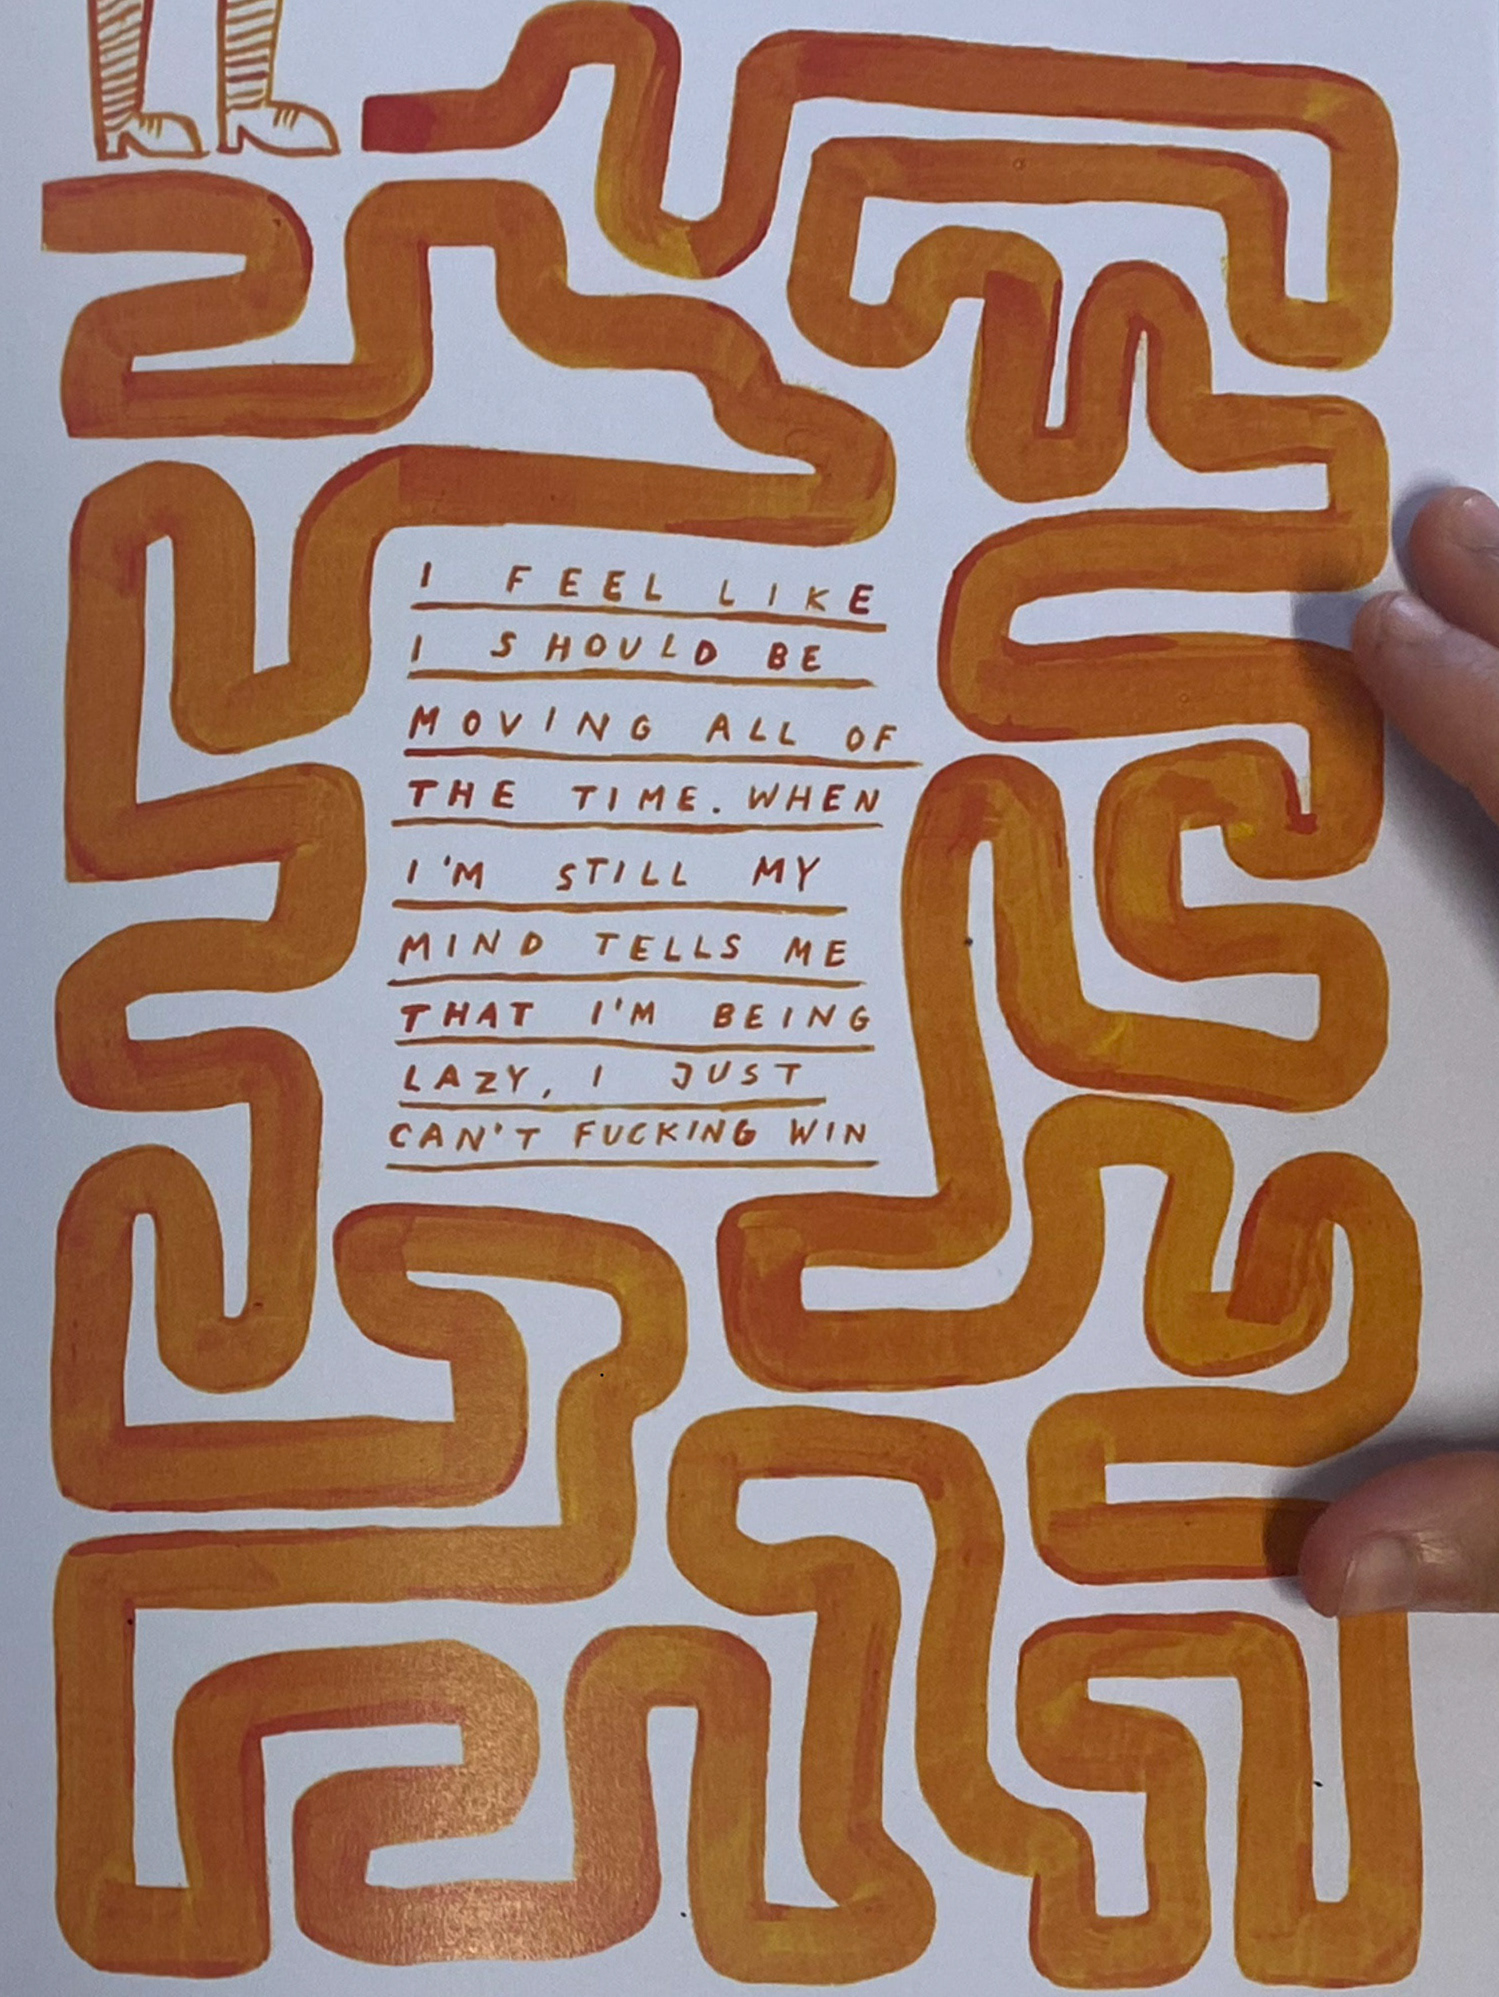 I FEEL LIKE
I SHOULD BE
MOVING ALL OF
THE TIME. WHEN
I'M STILL MY
MIND TELLS ME
THAT I'M BEING
LAZY, I JUST
CAN'T FUCKING WIN